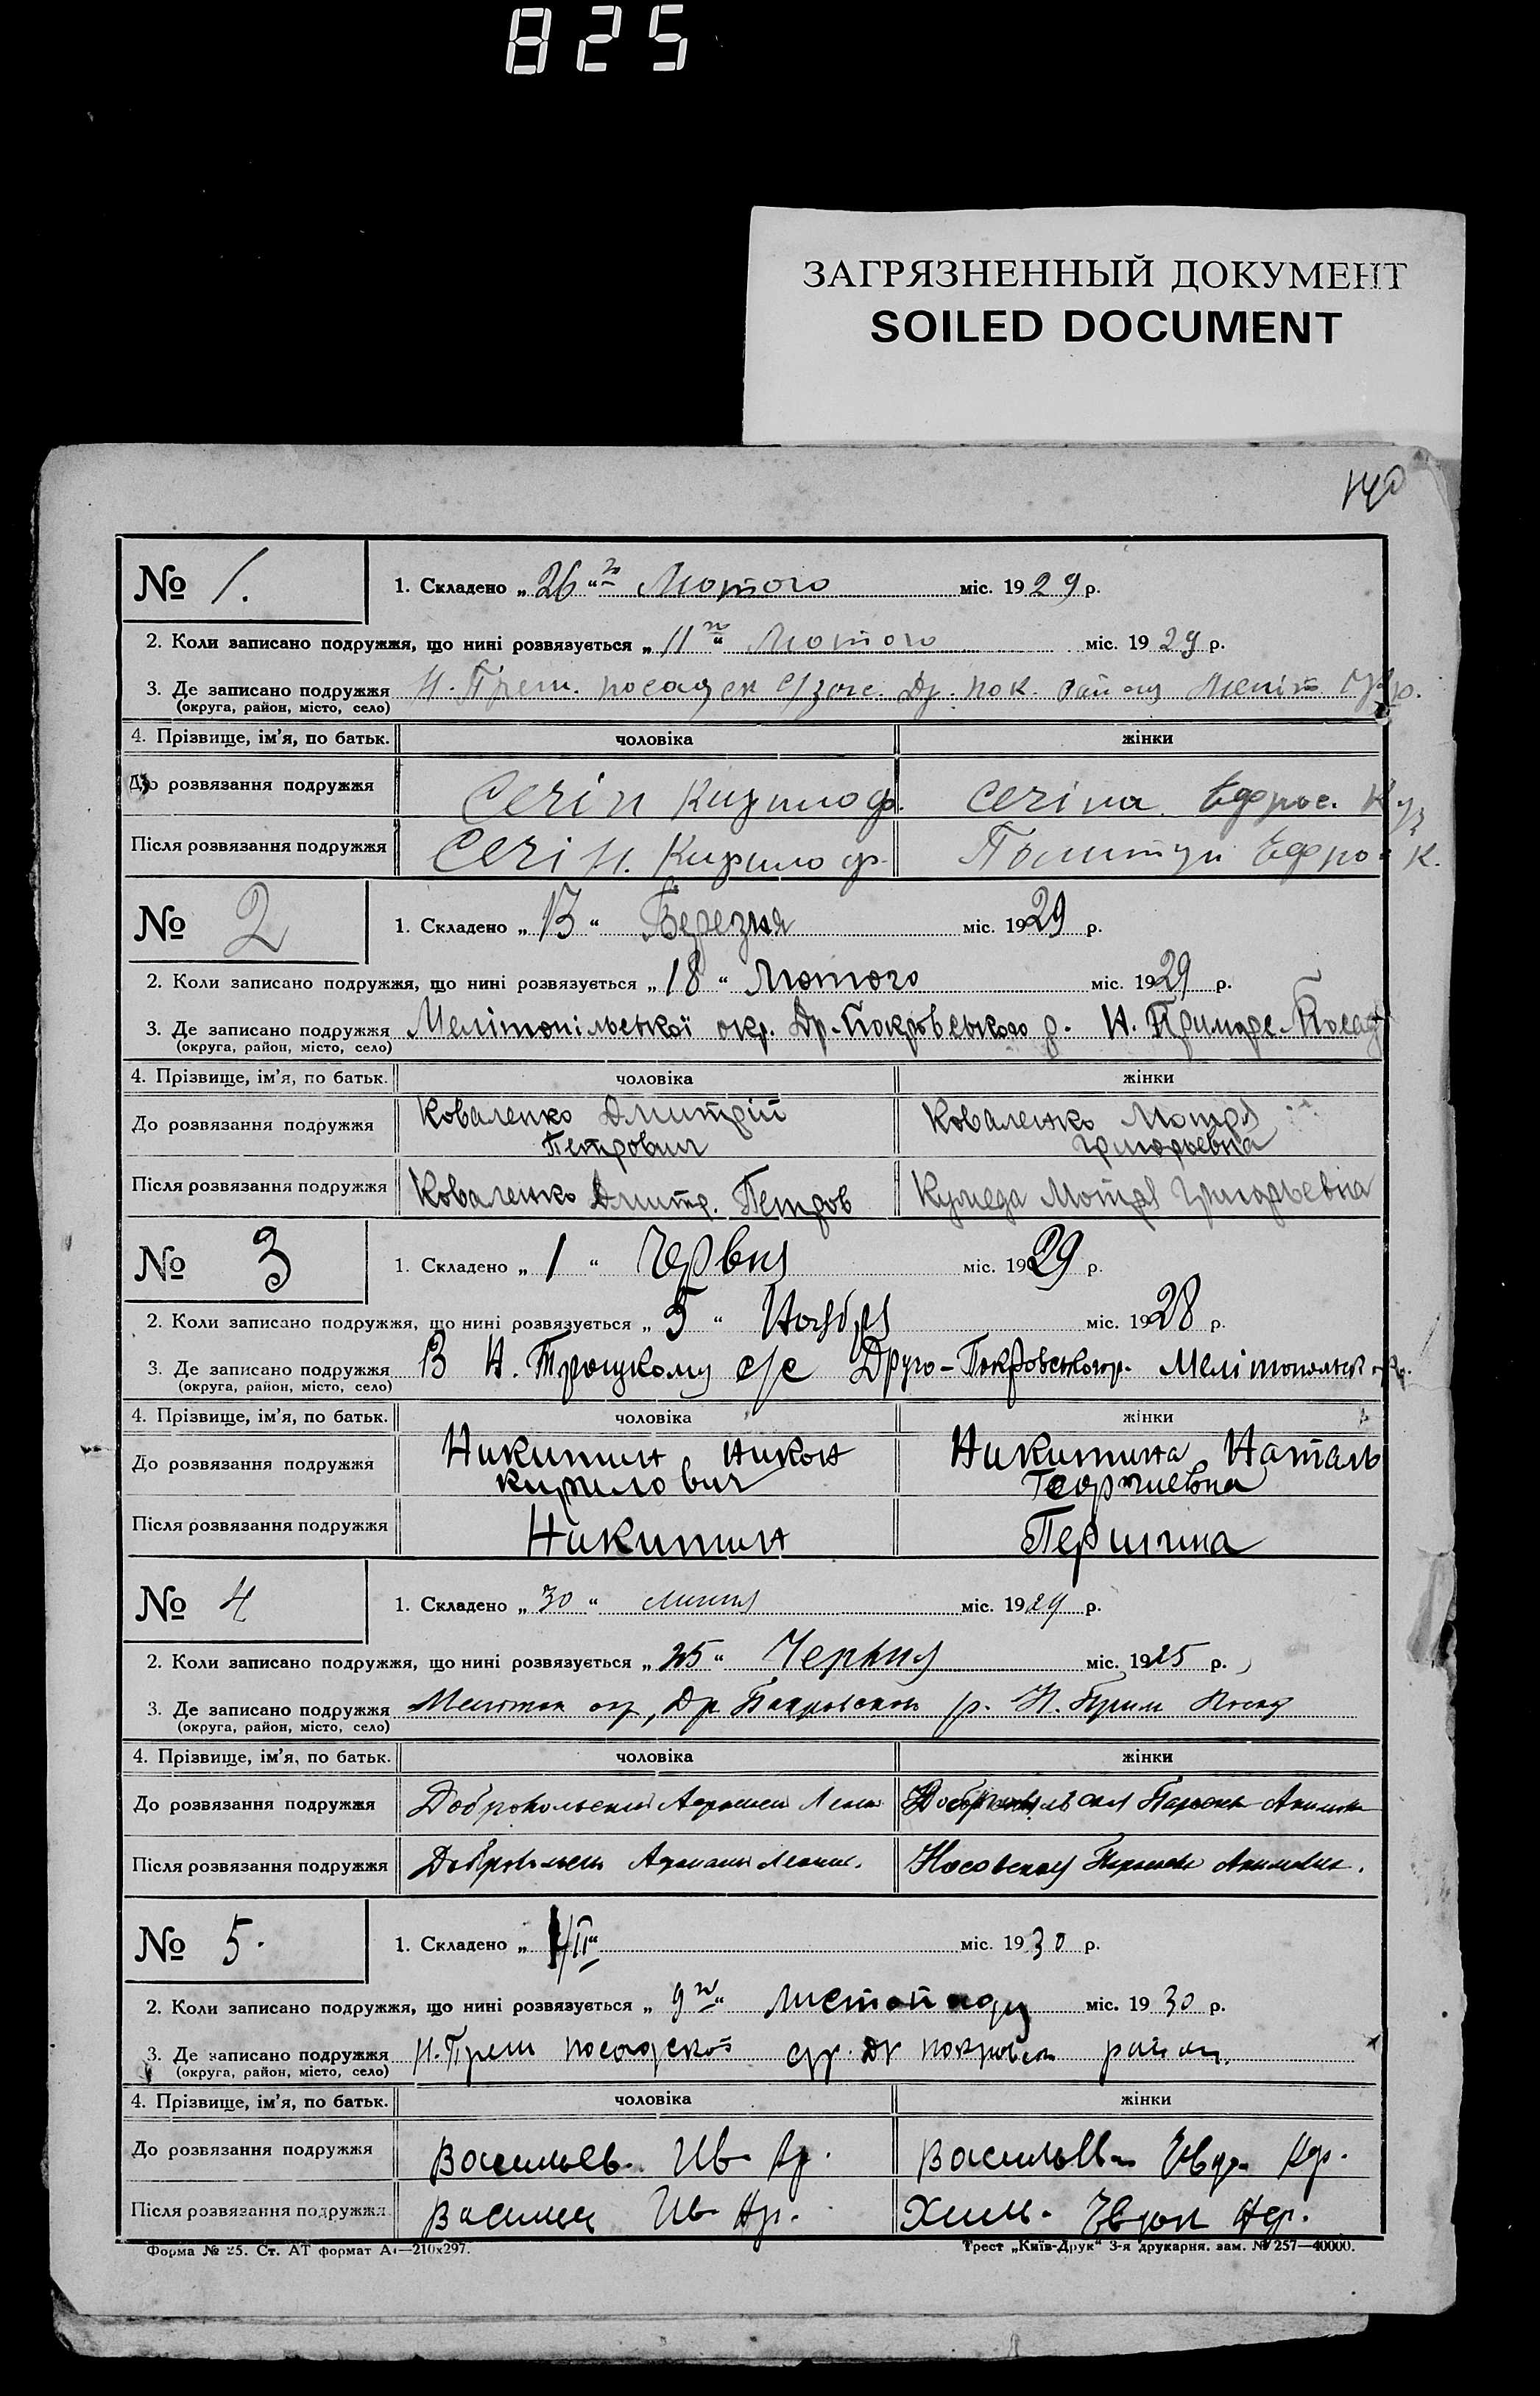 825
ЗАГРЯЗНЕННЫЙ ДОКУМЕНТ
SOILED DOCUMENT
140
№ 1. 1. Складено „ 26 “ го Лютого міс. 1929 р.
2. Коли записано подружжя, що нині розвязується „ 11 го “ Лютого міс. 1929 р.
3. Де записано подружжя Н. Прет. посадск с/
(округа, район, місто, село)
4. Прізвище, ім’я, по батьк. чоловіка жінки
До розвязання подружжя Сегін Кирило ф. Сегіна Ефрос.
Після розвязання подружжя Сегін. Кирило ф. Ефрос К.
№ 2 1. Складено „ 13 “ Березня міс. 1929 р.
2. Коли записано подружжя, що нині розвязується „ 18 “ Лютого міс. 1929 р.
3. Де записано подружжя Мелітопільської окр. Др.-Покровського р. Н.
(округа, район, місто, село)
4. Прізвище, ім’я, по батьк. чоловіка жінки
До розвязання подружжя Коваленко Дмитрій Коваленко Мотря
Петрович Григорьевна
Після розвязання подружжя Коваленко Дмитр. Петров Мотря Григорьевна
№ 3 1. Складено „ 1 “ Червня міс. 1929 р.
2. Коли записано подружжя, що нині розвязується „ 5 “ Ноября міс. 1928 р.
3. Де записано подружжя В Н. Троцкому с/с Друго-Покровського р. Мелітопольск окр.
(округа, район, місто, село)
4. Прізвище, ім’я, по батьк. чоловіка жінки
До розвязання подружжя Никитин Никон Никитина Наталь
Кирилович Георгиевна
Після розвязання подружжя Никитин
№ 4 1. Складено „ 30 “ липня міс. 1929 р.
2. Коли записано подружжя, що нині розвязується „ 25 “ Червня міс. 1925 р.
3. Де записано подружжя Мелитоп окр, Др Покровского р. Н. Прим Посад
(округа, район, місто, село)
4. Прізвище, ім’я, по батьк. чоловіка жінки
До розвязання подружжя Добровольский
Після розвязання подружжя Носовская Акимовна.
№ 5. 1. Складено „ “ міс. 1930 р.
2. Коли записано подружжя, що нині розвязується „ 9 го “ Листопаду міс. 1930 р.
3. Де записано подружжя Н. Прет посадской Др покровск район.
(округа, район, місто, село)
4. Прізвище, ім’я, по батьк. чоловіка жінки
До розвязання подружжя Васильев. Ив.
Після розвязання подружжя Ив
Форма № 25. Ст. АТ формат А₄—210х297. Трест „Київ-Друк“ 3-я друкарня. зам. № 257—40000.